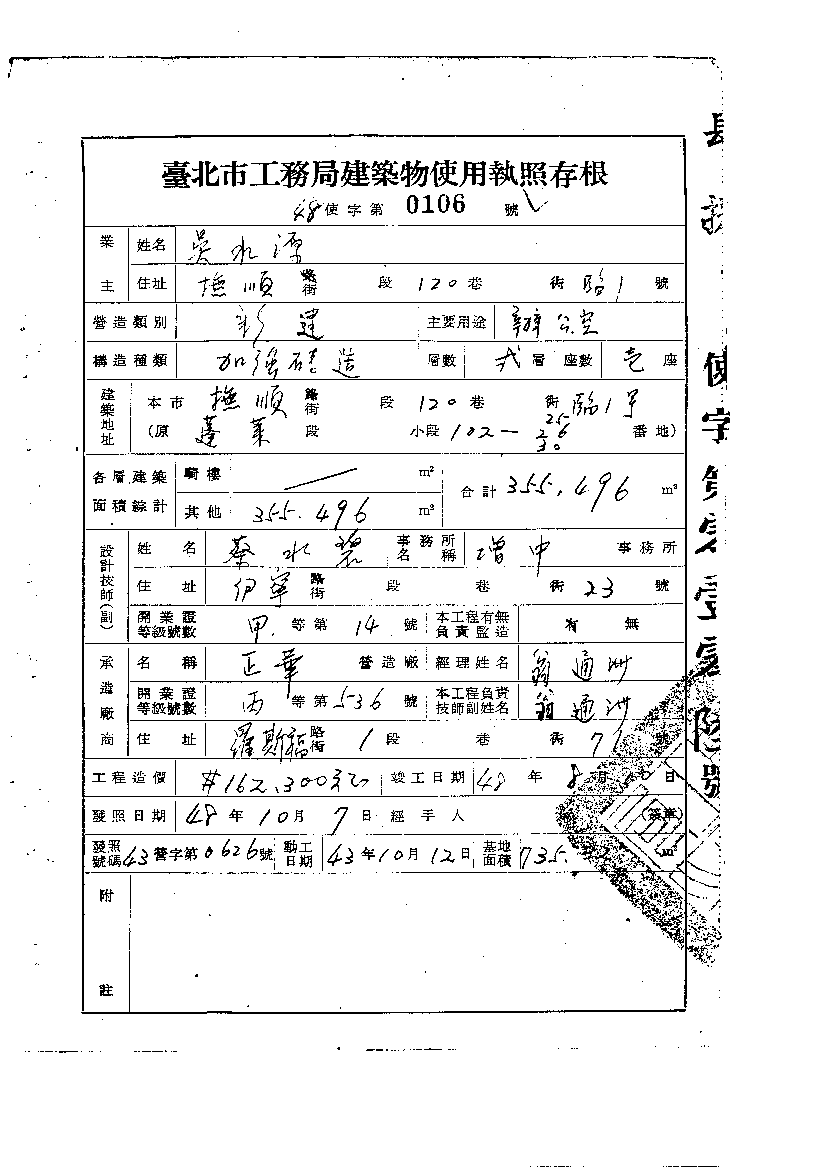 臺北市工務局建築物使用執照存根
48使字第 0106 號
業主 姓名 吳水源
住址 撫順路街 段 120巷 街臨1號
營造類別 新建 主要用途 辦公室
構造種類 加強磚造 層數 弍層 座數 壱座
建築地址 本市 撫順路街 段 120巷 街臨1号
(原 蓬萊 段 小段 102— 25 26 30 番地)
各層建築面積綜計 騎樓 m² 合計 355.496 m²
其他 355.496 m²
設計技師(副) 姓名 蔡水 事務所名稱 增中 事務所
住址 伊寧路街 段 巷 街 23 號
開業證等級號數 甲 等第 14 號 本工程有無負責監造 有 無
承造廠商 名稱 正華 營造廠 經理姓名 翁通洲
開業證等級號數 丙 等第 536 號 本工程負責技師副姓名 翁通洲
住址 羅斯福路街 1段 巷 街 71 號
工程造價 #162,300元 竣工日期 48年 8月 日
發照日期 48年 10月 7日 經手人 (簽章)
發照號碼 43營字第0626號 動工日期 43年10月12日 基地面積 735. m²
附註
使字第零壹零陸號